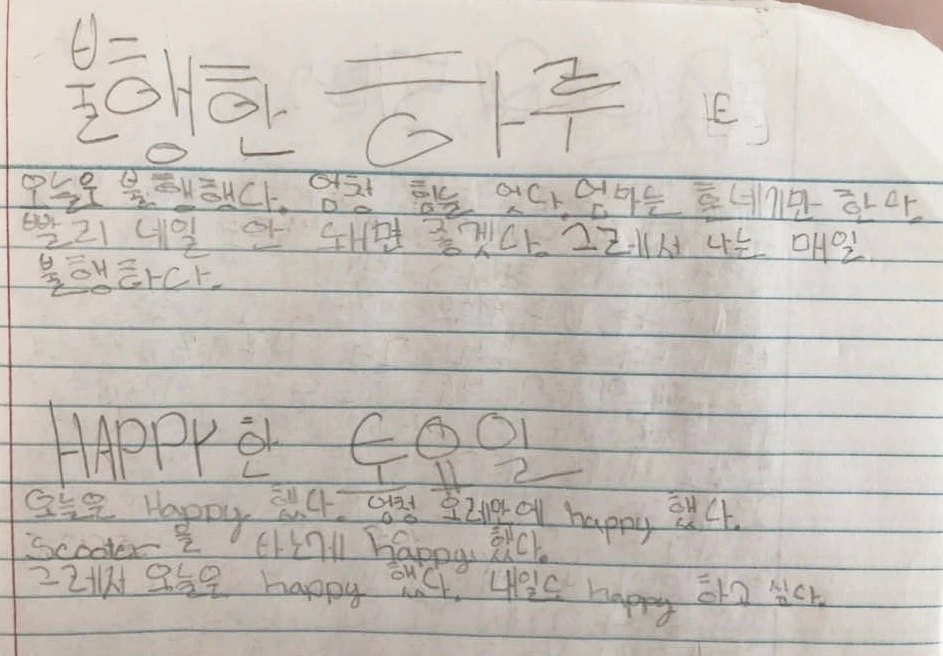 불행한 하루 [E]
오늘은 불행했다. 엄청 힘들엇다. 엄마는 혼네기만 한다.
빨리 네일 안 돼면 좋겟다. 그레서 나는 매일
불행하다.
HAPPY한 토요일
오늘은 Happy 했다. 엄청 오레만에 happy 했다.
Scooter을 타는게 happy 했다.
그레서 오늘은 happy 했다. 내일도 happy 하고 싶다.